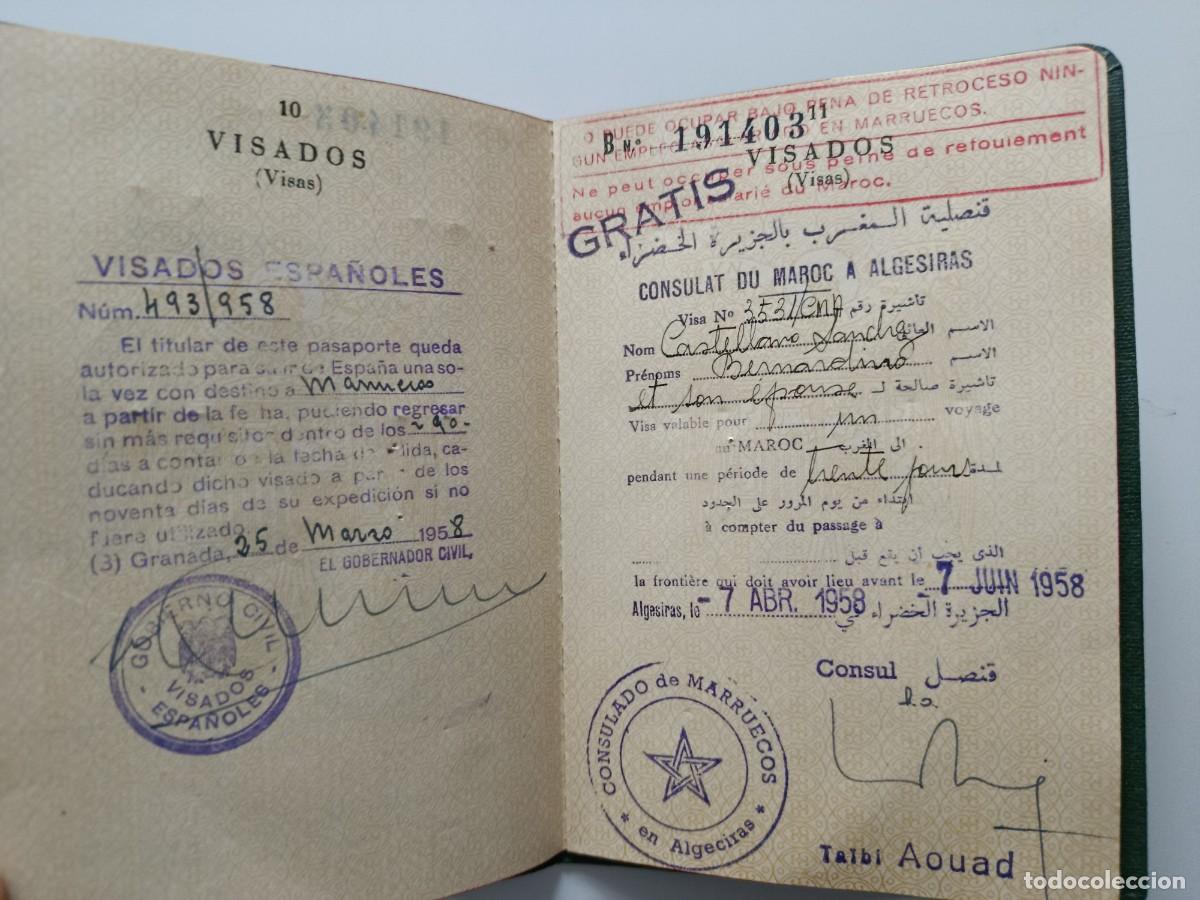 10
VISADOS
(Visas)
VISADOS ESPAÑOLES
Núm. 493/958
El titular de este pasaporte queda
autorizado para salir de España una so-
la vez con destino a Marruecos
a partir de la fecha, pudiendo regresar
sin más requisitos dentro de los 90
días a contar de la fecha de salida, ca-
ducando dicho visado a partir de los
noventa días de su expedición si no
fuere utilizado.
(3) Granada, 25 de Marzo 1958
EL GOBERNADOR CIVIL,
GOBIERNO CIVIL
VISADOS
- ESPAÑOLES -
O PUEDE OCUPAR BAJO PENA DE RETROCESO NIN-
GUN EMPLEO EN MARRUECOS.
B Nº 191403
11
VISADOS
(Visas)
Ne peut occuper sous peine de refoulement
aucun emploi salarié du Maroc.
GRATIS
قنصلية المغرب بالجزيرة الخضراء
CONSULAT DU MAROC A ALGESIRAS
Visa Nº 3531/CMA تاشيرة رقم
Nom Castellano Sanchez الاسم العائلي
Prénoms Bernardino الاسم
et son épouse تاشيرة صالحة لـ
Visa valable pour un voyage
au MAROC الى المغرب
pendant une période de trente jours لمدة
ابتداء من يوم المرور على الحدود
à compter du passage à
الذي يجب أن يقع قبل
la frontière qui doit avoir lieu avant le - 7 JUIN 1958
Algesiras, le - 7 ABR. 1958 الجزيرة الخضراء في
Consul قنصل
CONSULADO de MARRUECOS
* en Algeciras *
Taïbi Aouad
todocoleccion